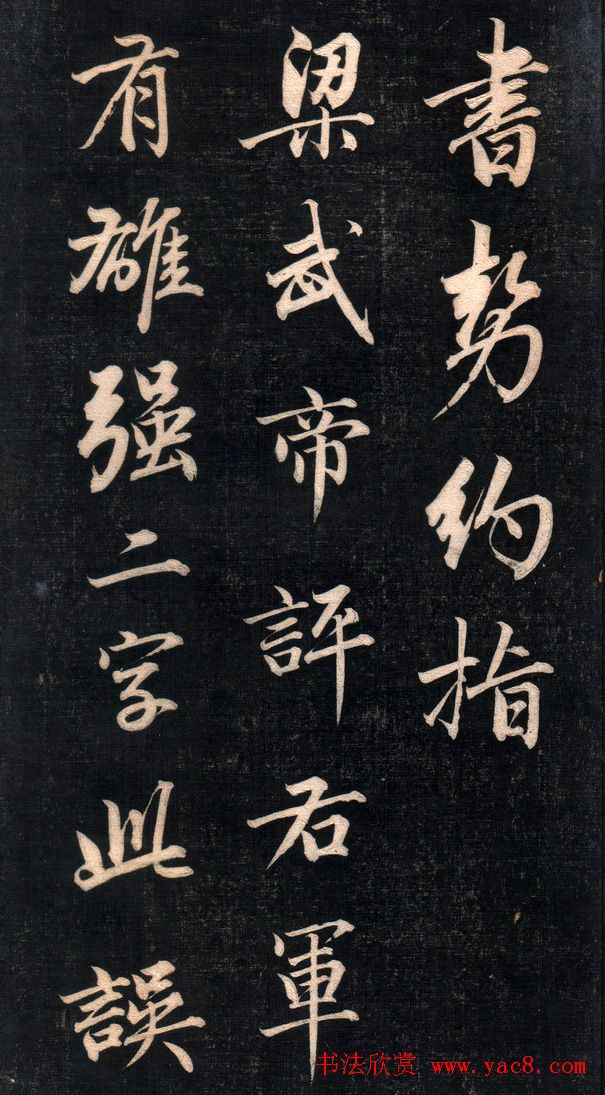 書勢約指
梁武帝評右軍
有雄强二字此誤
书法欣赏 www.yac8.com